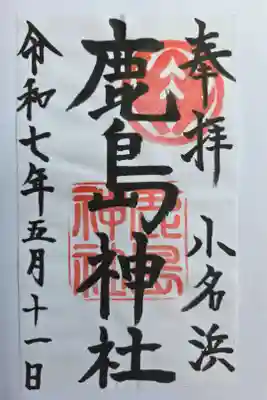 奉拝 小名浜
鹿島神社
鹿島
神社
令和七年五月十一日